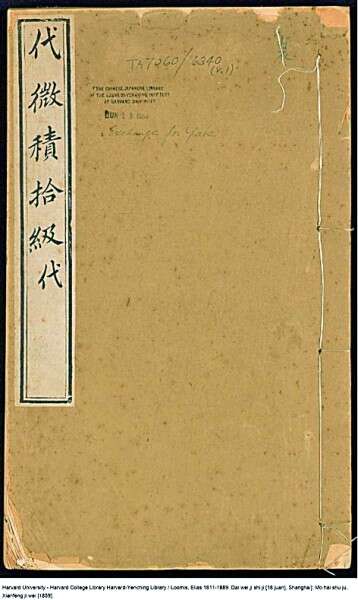 代微積拾級 代
TA7260/6340
(v.1)
THE CHINESE-JAPANESE LIBRARY
OF THE HARVARD-YENCHING INSTITUTE
AT HARVARD UNIVERSITY
Exchange for Yale
Harvard University - Harvard College Library Harvard-Yenching Library / Loomis, Elias 1811-1889. Dai wei ji shi ji [18 juan], Shanghai]: Mo hai shu ju,
Xianfeng ji wei [1859].